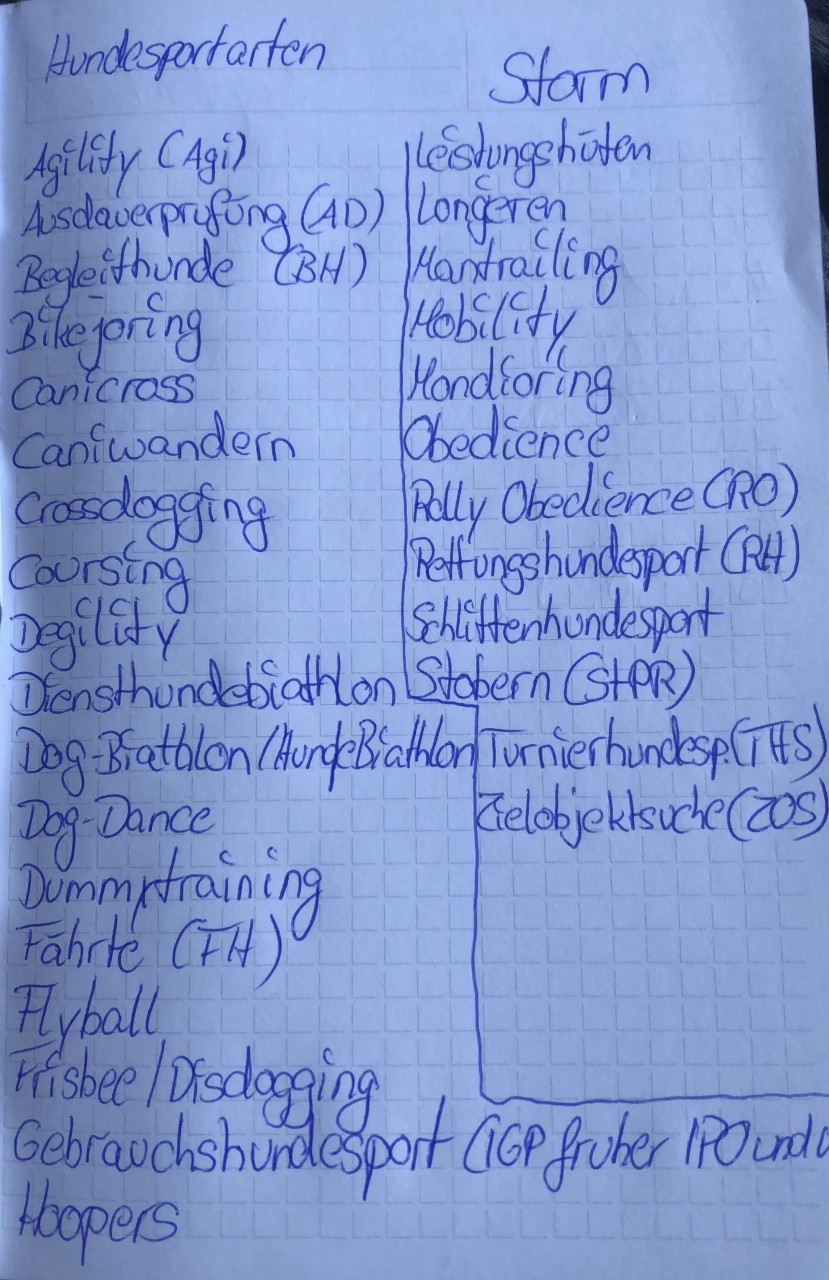 Hundesportarten
Storm
Agility (Agi)
Ausdauerprüfung (AD)
Begleithunde (BH)
Bikejöring
Canicross
Caniwandern
Crossdogging
Coursing
Degility
Diensthundebiathlon
Dog-Biathlon/HundeBiathlon
Dog-Dance
Dummytraining
Fährte (FH)
Flyball
Frisbee/Disdogging
Gebrauchshundesport (IGP früher IPO und
Hoopers
Leistungshüten
Longieren
Mantrailing
Mobility
Mondioring
Obedience
Rally Obedience (RO)
Rettungshundesport (RH)
Schlittenhundesport
Stöbern (StPR)
Turnierhundesp. (THS)
Zielobjektsuche (ZOS)